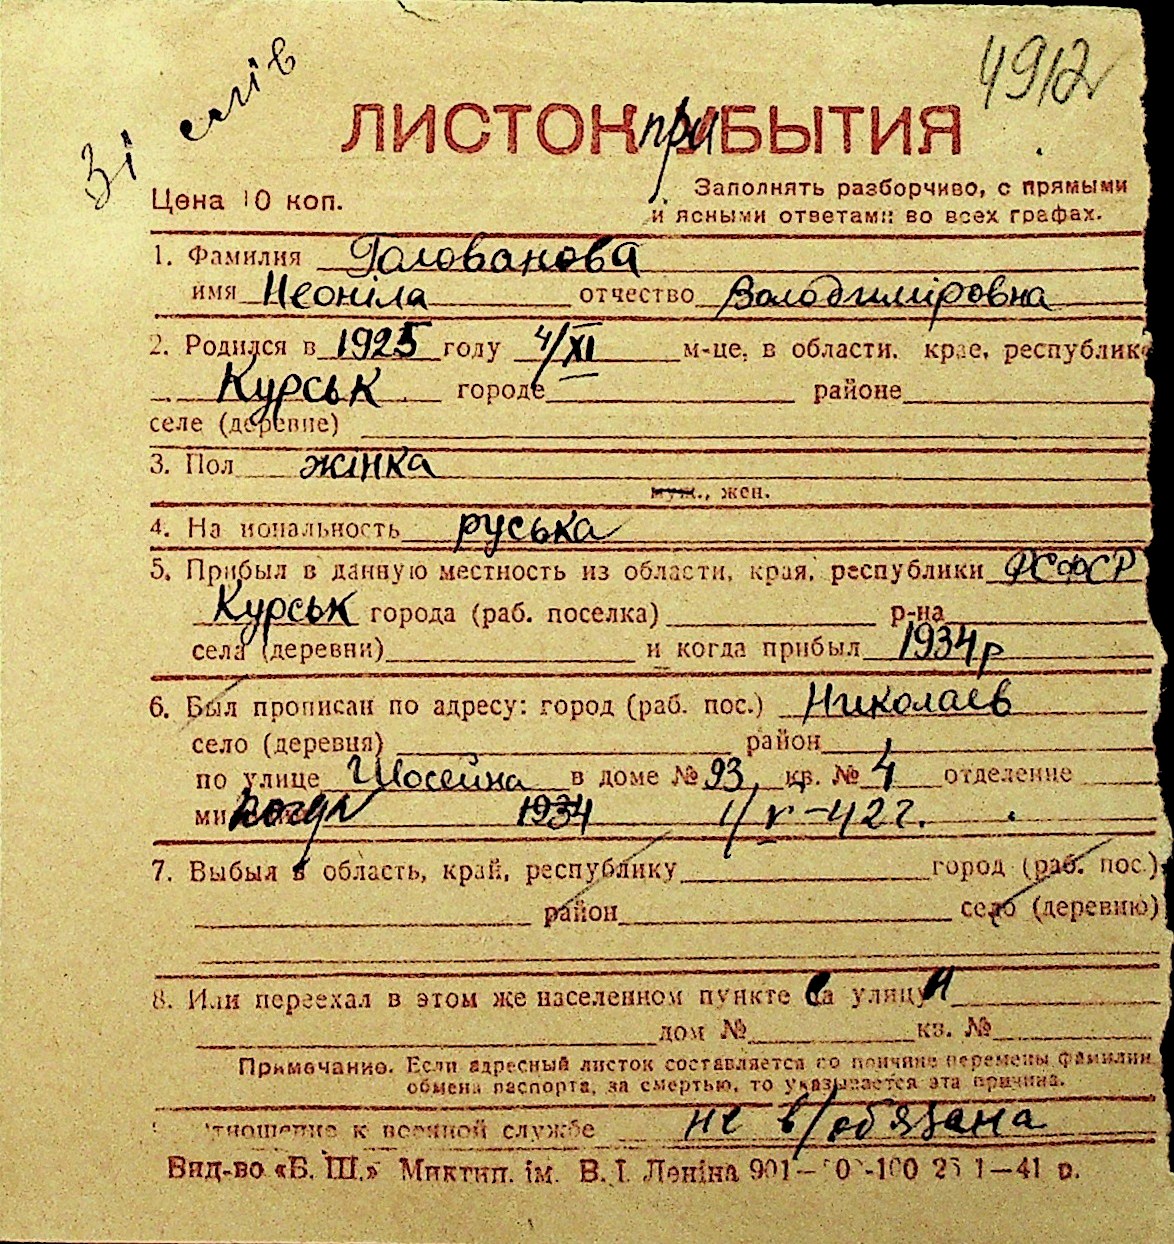 Зі слів
4912
ЛИСТОК прибЫТИЯ
Цена 10 коп.
Заполнять разборчиво, с прямыми
и ясными ответами во всех графах.
1. Фамилия Голованова
имя Неоніла отчество Володиміровна
2. Родился в 1925 году 4/XI м-це, в области, крае, республике
Курськ городе районе
селе (деревне)
3. Пол жінка
муж., жен.
4. На иональность руська
5. Прибыл в данную местность из области, края, республики РСФСР
Курськ города (раб. поселка) р-на
села (деревни) и когда прибыл 1934 р
6. Был прописан по адресу: город (раб. пос.) Николаев
село (деревня) район
по улице Шосейна в доме № 93, кв. № 4 отделение
ми 1934 1/V-42 г.
7. Выбыл в область, край, республику город (раб. пос.)
район село (деревню)
8. Или переехал в этом же населенном пункте са улицы
дом № кв. №
Примечание. Если адресный листок составляется по причине перемены фамилии
обмена паспорта, за смертью, то указывается эта причина.
тношение к военной службе не в/обязана
Вид-во «Б. Ш.» Миктип. ім. В. І. Леніна 901 1—41 р.